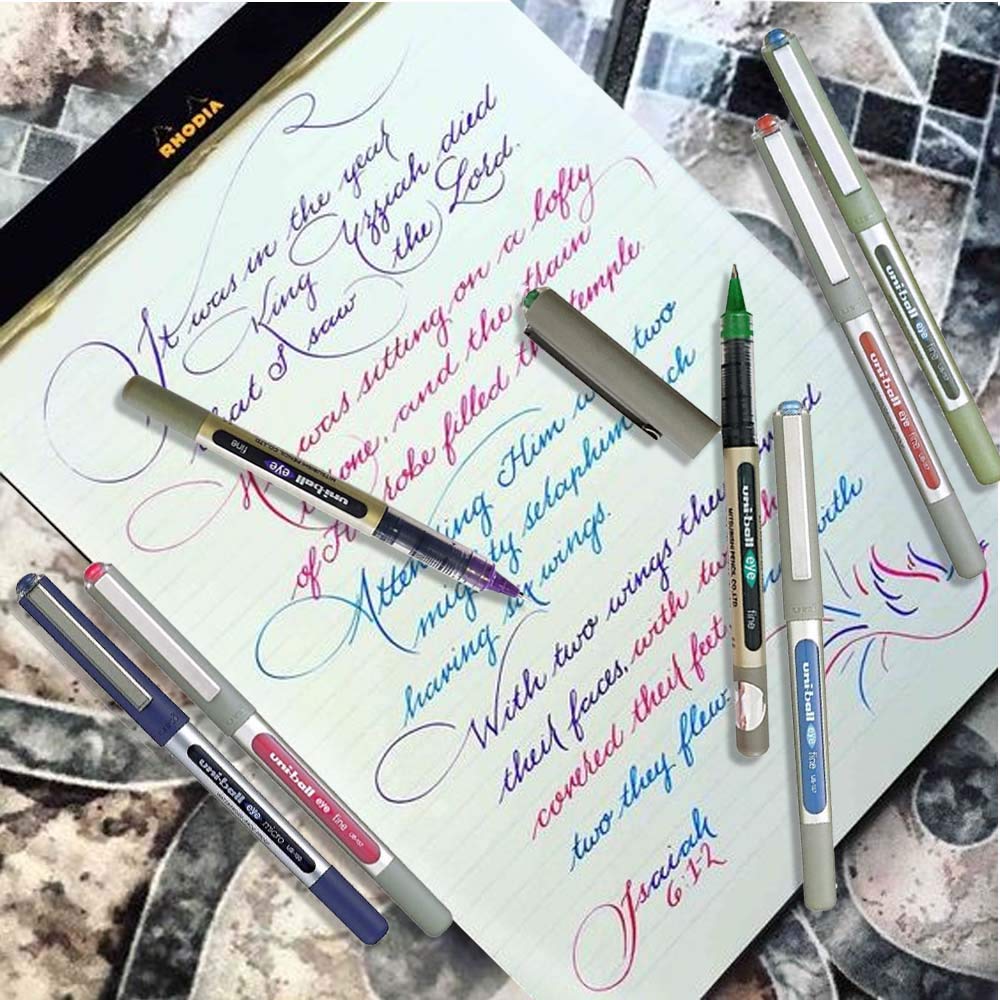 RHODIA
It was in the year
King Uzziah died
that I saw the Lord.
He was sitting on a lofty
throne, and the train
of His robe filled the temple.
Attending Him two
mighty seraphim
having six wings.
With two wings they
their faces, with two
covered their feet with
two they flew.
Isaiah
6:1-2
uni-ball eye fine
MITSUBISHI PENCIL CO.LTD
uni-ball eye fine
MITSUBISHI PENCIL CO.LTD
uni-ball eye fine
uni-ball eye fine UB-157
uni-ball eye fine UB-157
uni-ball eye micro UB-150
uni-ball eye fine UB-157